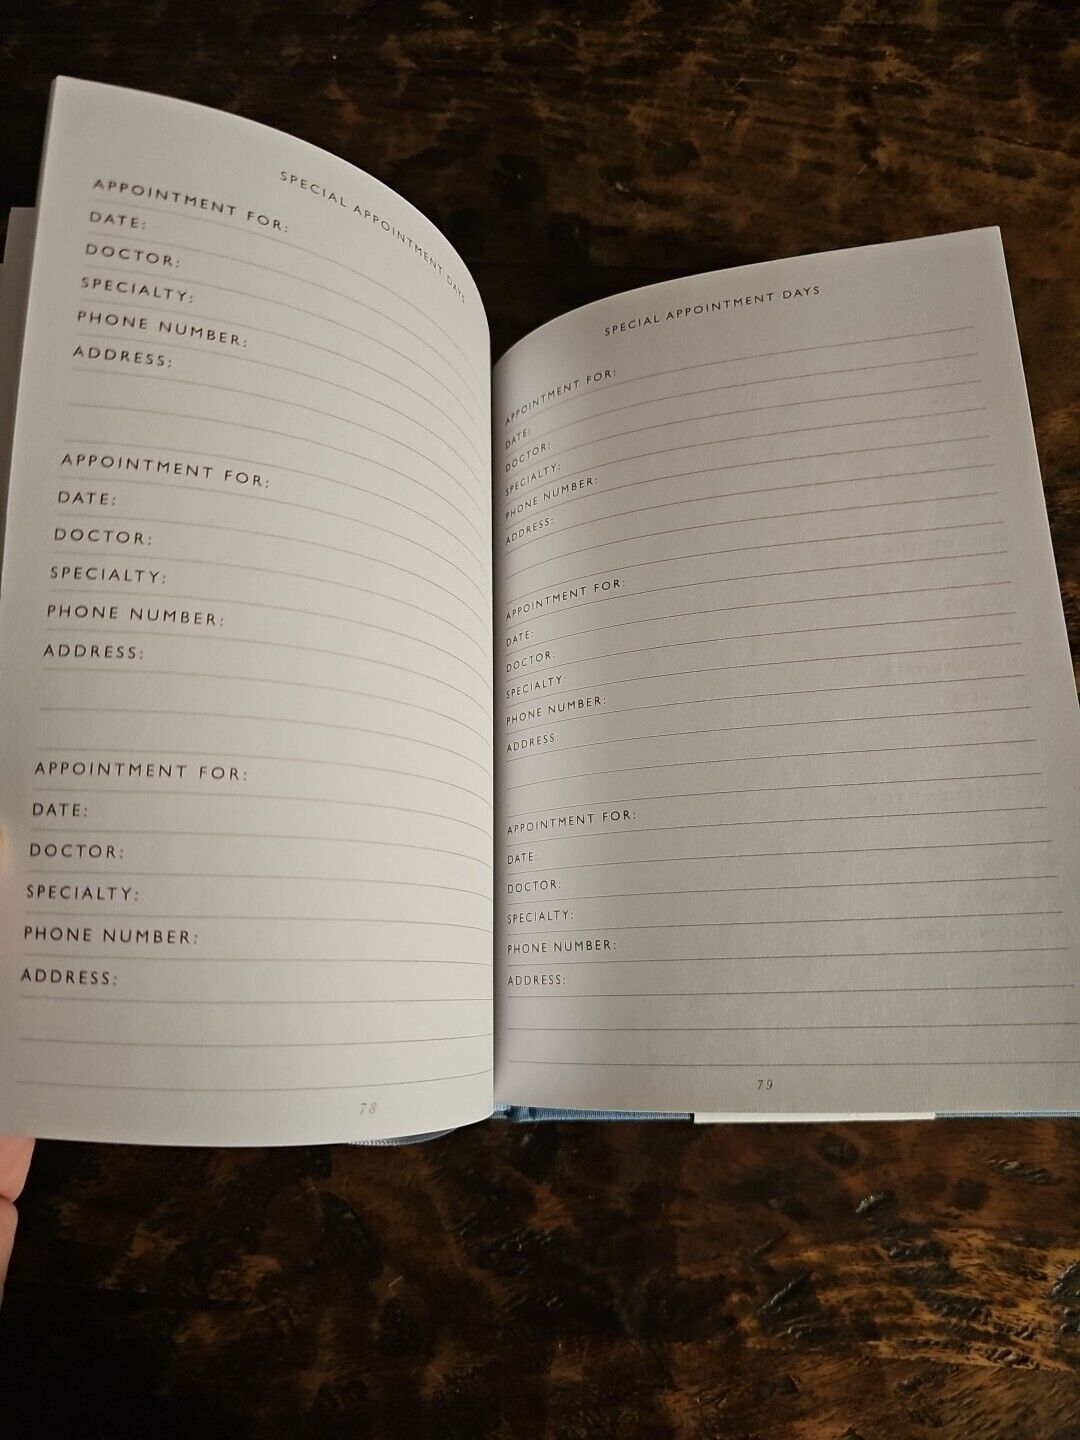 SPECIAL APPOINTMENT DAYS
APPOINTMENT FOR:
DATE:
DOCTOR:
SPECIALTY:
PHONE NUMBER:
ADDRESS:
APPOINTMENT FOR:
DATE:
DOCTOR:
SPECIALTY:
PHONE NUMBER:
ADDRESS:
APPOINTMENT FOR:
DATE:
DOCTOR:
SPECIALTY:
PHONE NUMBER:
ADDRESS:
78
SPECIAL APPOINTMENT DAYS
APPOINTMENT FOR:
DATE:
DOCTOR:
SPECIALTY:
PHONE NUMBER:
ADDRESS:
APPOINTMENT FOR:
DATE:
DOCTOR:
SPECIALTY:
PHONE NUMBER:
ADDRESS:
APPOINTMENT FOR:
DATE:
DOCTOR:
SPECIALTY:
PHONE NUMBER:
ADDRESS:
79